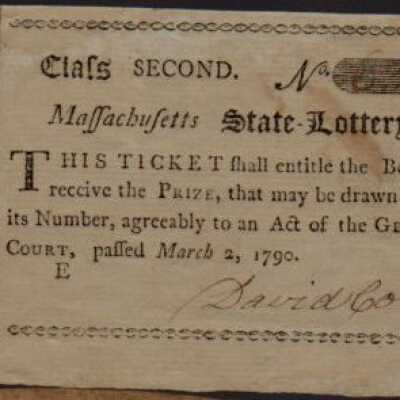 Claſs SECOND. No.
Maſſachuſetts State-Lottery
THIS TICKET ſhall entitle the
receive the PRIZE, that may be drawn
its Number, agreeably to an Act of the
COURT, paſſed March 2, 1790.
E
David